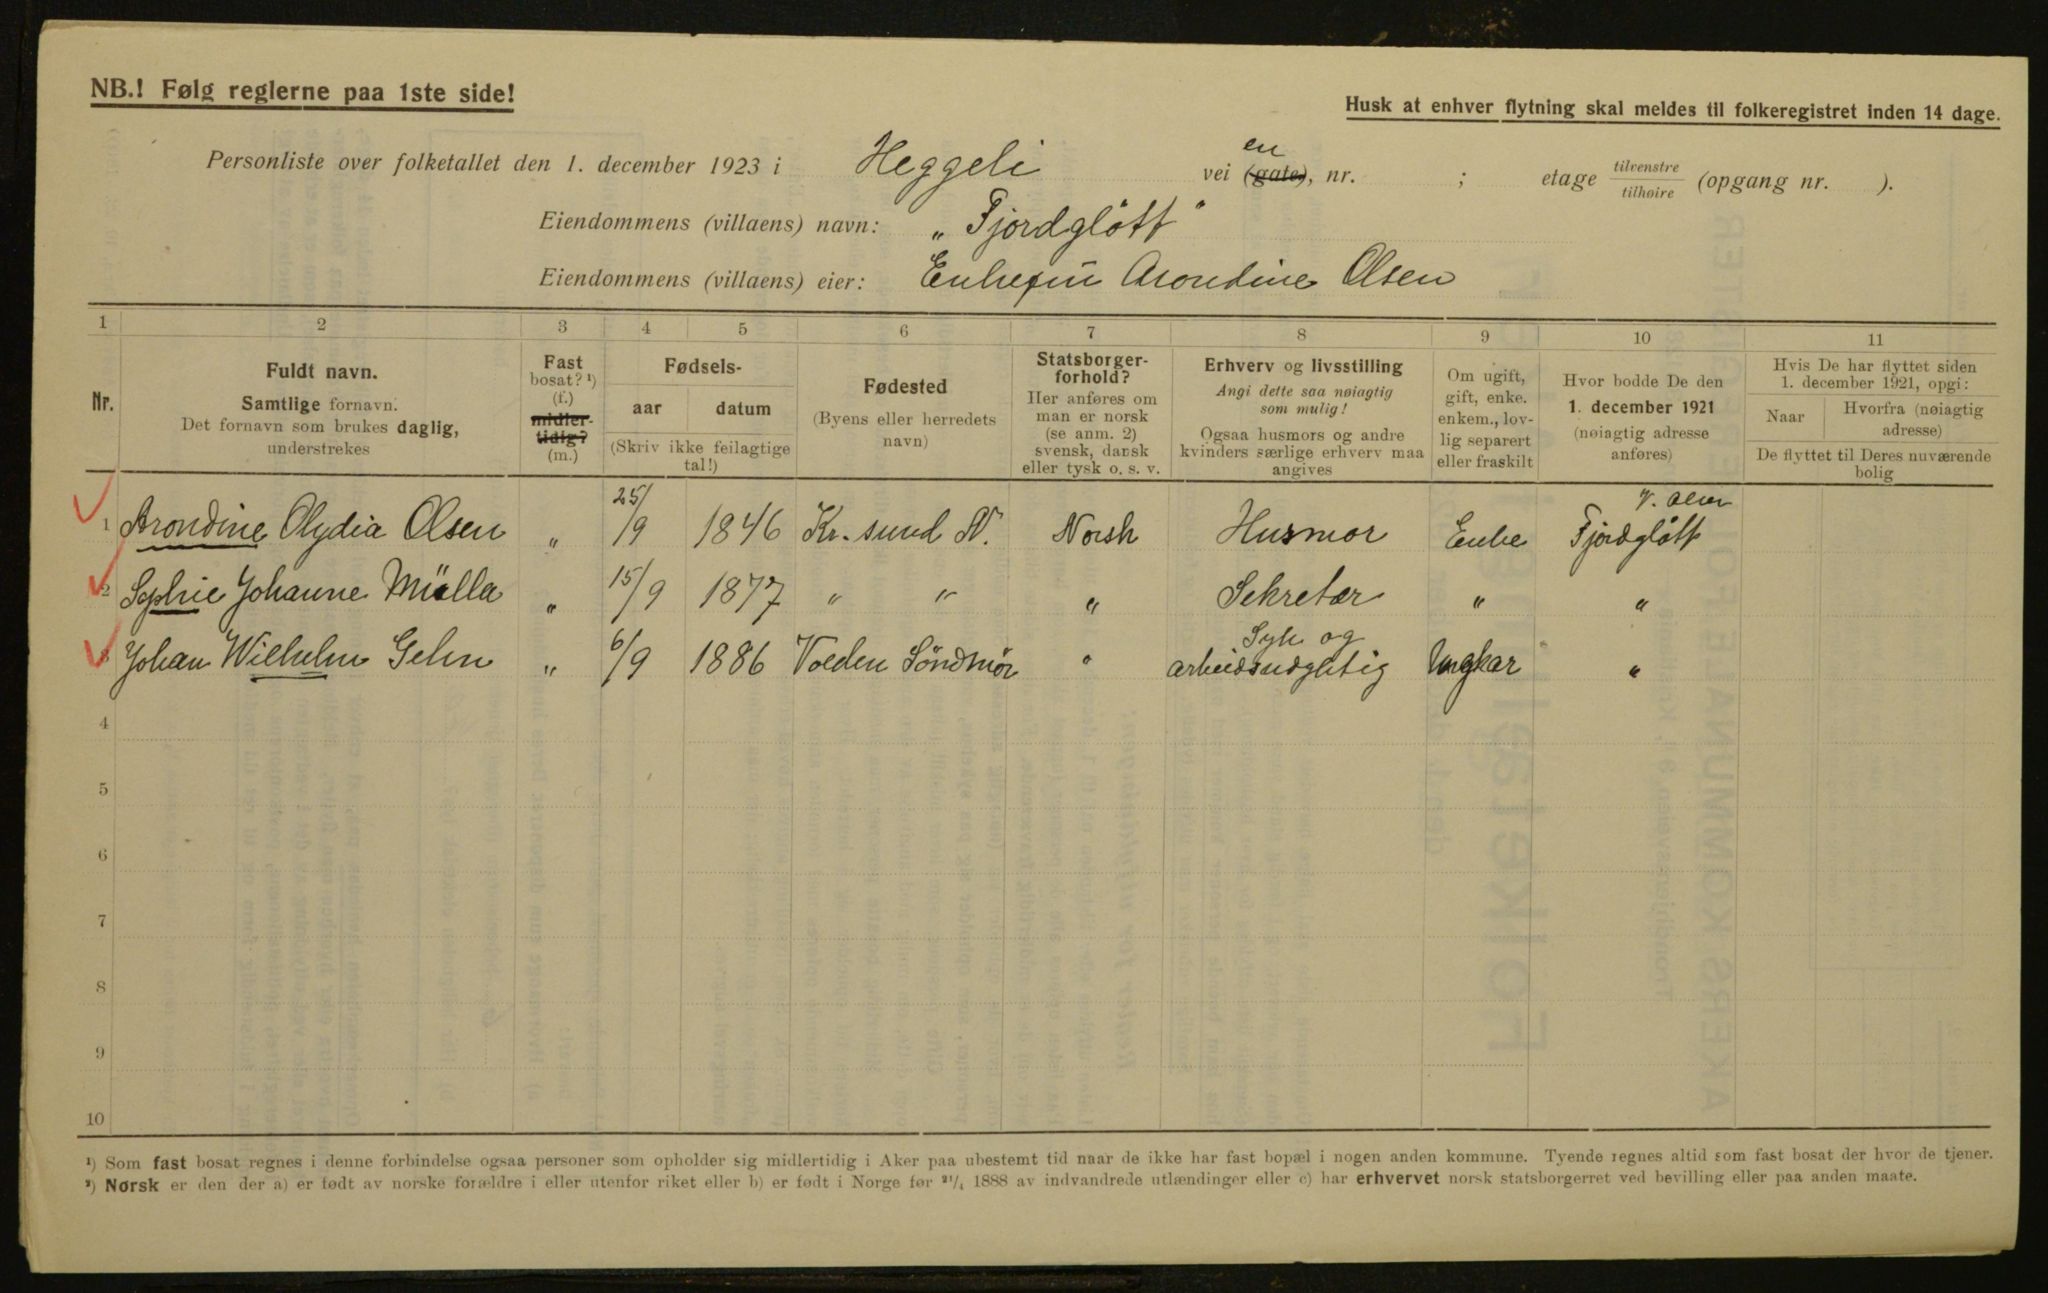 NB.! Følg reglerne paa 1ste side!
Husk at enhver flytning skal meldes til folkeregistret inden 14 dage.
Personliste over folketallet den 1. december 1923 i Heggeli veien (gate), nr. ; etage tilvenstre tilhøire (opgang nr. ).
Eiendommens (villaens) navn: „Fjordglött"
Eiendommens (villaens) eier: Enkefru Arondine Olsen
1 2 3 4 5 6 7 8 9 10 11
Nr.
Fuldt navn.
Samtlige fornavn.
Det fornavn som brukes daglig,
understrekes
Fast
bosat? ¹)
(f.)
midler-
tidig?
(m.)
Fødsels-
aar datum
(Skriv ikke feilagtige
tal!)
Fødested
(Byens eller herredets
navn)
Statsborger-
forhold?
Her anføres om
man er norsk
(se anm. 2)
svensk, dansk
eller tysk o. s. v.
Erhverv og livsstilling
Angi dette saa nøiagtig
som mulig!
Ogsaa husmors og andre
kvinders særlige erhverv maa
angives
Om ugift,
gift, enke.
enkem., lov-
lig separert
eller fraskilt
Hvor bodde De den
1. december 1921
(nøiagtig adresse
anføres)
Hvis De har flyttet siden
1. december 1921, opgi:
Naar Hvorfra (nøiagtig
adresse)
De flyttet til Deres nuværende
bolig
1 Arondine Olydia Olsen „ 25/9 1846 Kr. sund N. Norsk Husmor Enke Fjordglött
2 Sophie Johanne Mülla „ 15/9 1877 „ „ „ Sekretær „ „
3 Johan Wilhelm „ 6/9 1886 Volden Söndmör „ Syk og
arbeidsudgktig Ungkar „
4
5
6
7
8
9
10
¹) Som fast bosat regnes i denne forbindelse ogsaa personer som opholder sig midlertidig i Aker paa ubestemt tid naar de ikke har fast bopæl i nogen anden kommune. Tyende regnes altid som fast bosat der hvor de tjener.
²) Norsk er den der a) er født av norske forældre i eller utenfor riket eller b) er født i Norge før ²¹/₄ 1888 av indvandrede utlændinger eller c) har erhvervet norsk statsborgerret ved bevilling eller paa anden maate.